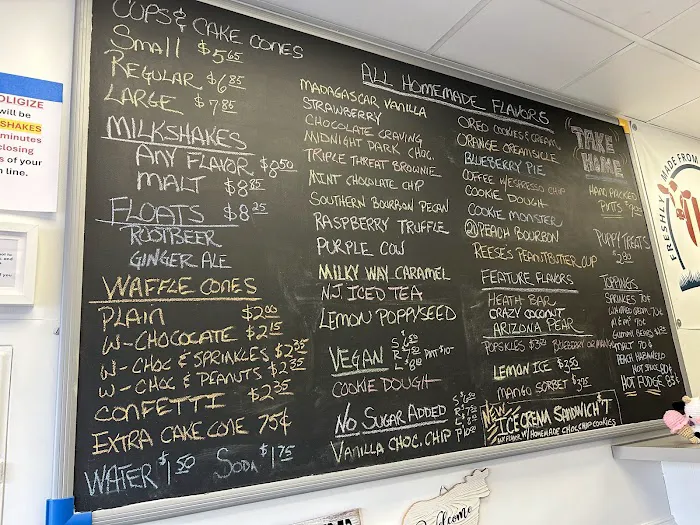 OLOGIZE
will be
SHAKES
minutes
closing
s of your
n line.
CUPS & CAKE CONES
SMALL $5.65
REGULAR $6.85
LARGE $7.85
MILKSHAKES
ANY FLAVOR $8.50
MALT $8.85
FLOATS $8.25
ROOTBEER
GINGER ALE
WAFFLE CONES
PLAIN $2.00
W-CHOCOLATE $2.15
W-CHOC & SPRINKLES $2.35
W-CHOC & PEANUTS $2.35
CONFETTI $2.35
EXTRA CAKE CONE 75¢
WATER $1.50 SODA $1.75
ALL HOMEMADE FLAVORS
MADAGASCAR VANILLA
STRAWBERRY
CHOCOLATE CRAVING
MIDNIGHT DARK CHOC.
TRIPLE THREAT BROWNIE
MINT CHOCOLATE CHIP
SOUTHERN BOURBON PECAN
RASPBERRY TRUFFLE
PURPLE COW
MILKY WAY CARAMEL
NJ ICED TEA
LEMON POPPYSEED
VEGAN
PINT $10-
COOKIE DOUGH
NO SUGAR ADDED
VANILLA CHOC. CHIP
OREO COOKIES & CREAM
ORANGE CREAMSICLE
BLUEBERRY PIE
COFFEE W/ESPRESSO CHIP
COOKIE DOUGH
COOKIE MONSTER
PEACH BOURBON
REESE'S PEANUTBUTTER CUP
FEATURE FLAVORS
HEATH BAR
CRAZY COCONUT
ARIZONA PEAR
POPSICLES BLUEBERRY OR MANGO
LEMON ICE $3.50
MANGO SORBET
NEW
ICE CREAM SANDWICH
W/ FLAVOR W/ HOMEMADE CHOC. CHIP COOKIES
"TAKE
HOME"
HAND PACKED
PINTS
PUPPY TREATS
TOPPINGS
SPRINKLES 70¢
WHIPPED CREAM 70¢
M&M'S 70¢
GUMMI BEARS
MALT 70¢
PEACH HABANERO
HOT SAUCE
HOT FUDGE 85¢
FRESHLY MADE FROM
Welcome